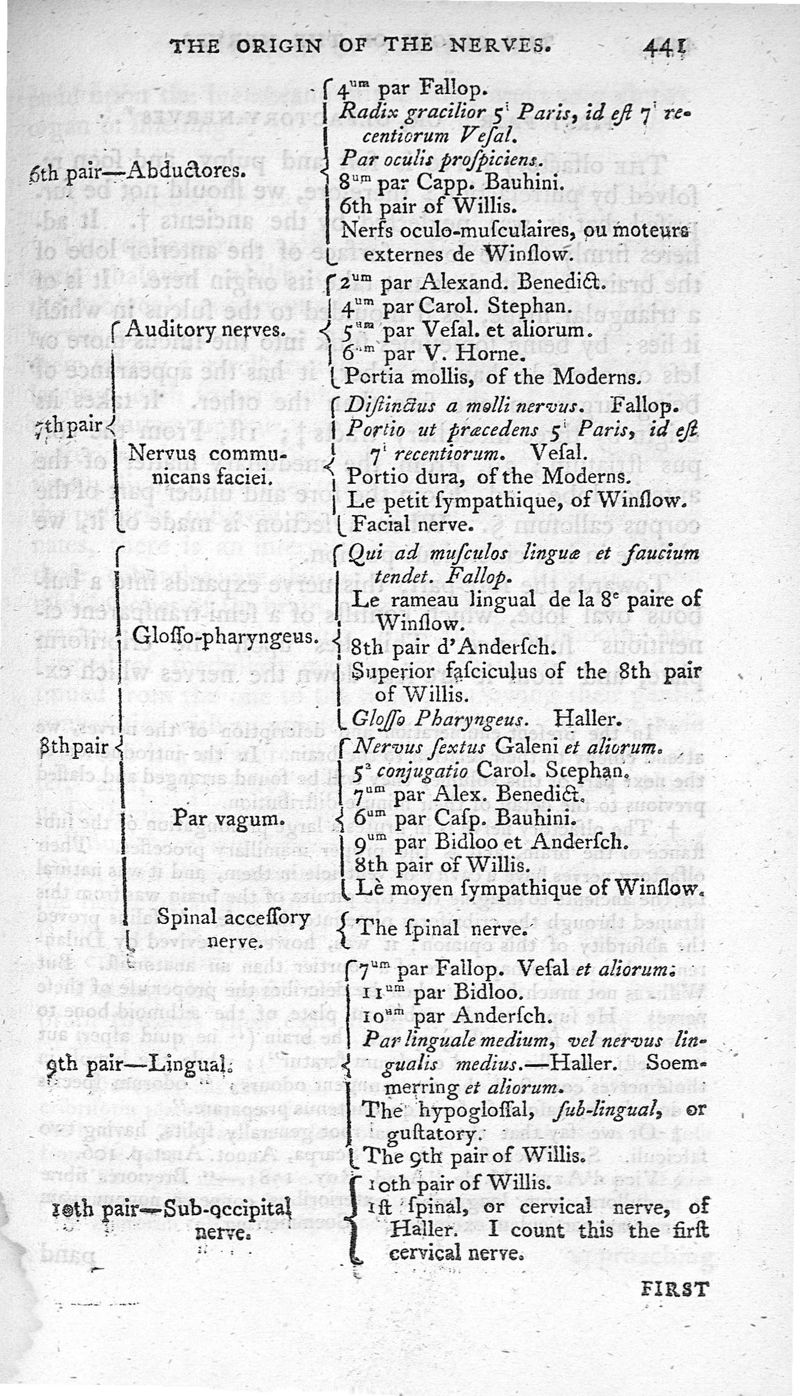 THE ORIGIN OF THE NERVES. 441
4um par Fallop.
Radix gracilior 5i Paris, id eſt 7i re-
centiorum Veſal.
Par oculis proſpiciens.
6th pair—Abductores.
8um par Capp. Bauhini.
6th pair of Willis.
Nerfs oculo-muſculaires, ou moteurs
externes de Winſlow.
2um par Alexand. Benedict.
4um par Carol. Stephan.
Auditory nerves.
5um par Veſal. et aliorum.
6um par V. Horne.
Portia mollis, of the Moderns.
Diſtinctus a molli nervus. Fallop.
7th pair
Portio ut præcedens 5i Paris, id eſt
7i recentiorum. Veſal.
Nervus commu-
nicans faciei.
Portio dura, of the Moderns.
Le petit ſympathique, of Winſlow.
Facial nerve.
Qui ad muſculos linguæ et faucium
tendet. Fallop.
Le rameau lingual de la 8e paire of
Winſlow.
Gloſſo-pharyngeus.
8th pair d'Anderſch.
Superior faſciculus of the 8th pair
of Willis.
Gloſſo Pharyngeus. Haller.
8th pair
Nervus ſextus Galeni et aliorum.
5a conjugatio Carol. Stephan.
7um par Alex. Benedict.
Par vagum.
6um par Caſp. Bauhini.
9um par Bidloo et Anderſch.
8th pair of Willis.
Lè moyen ſympathique of Winſlow.
Spinal acceſſory
nerve.
The ſpinal nerve.
7um par Fallop. Veſal et aliorum:
11um par Bidloo.
10um par Anderſch.
Par linguale medium, vel nervus lin-
9th pair—Lingual.
gualis medius.—Haller. Soem-
merring et aliorum.
The hypogloſſal, ſub-lingual, or
guſtatory.
The 9th pair of Willis.
10th pair of Willis.
10th pair—Sub-occipital
nerve.
1ſt ſpinal, or cervical nerve, of
Haller. I count this the firſt
cervical nerve.
FIRST